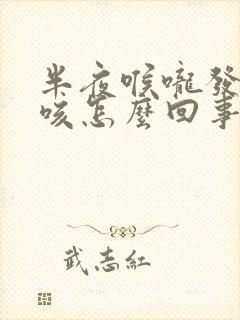 半夜喉嚨發
咳怎麼回事
武志紅